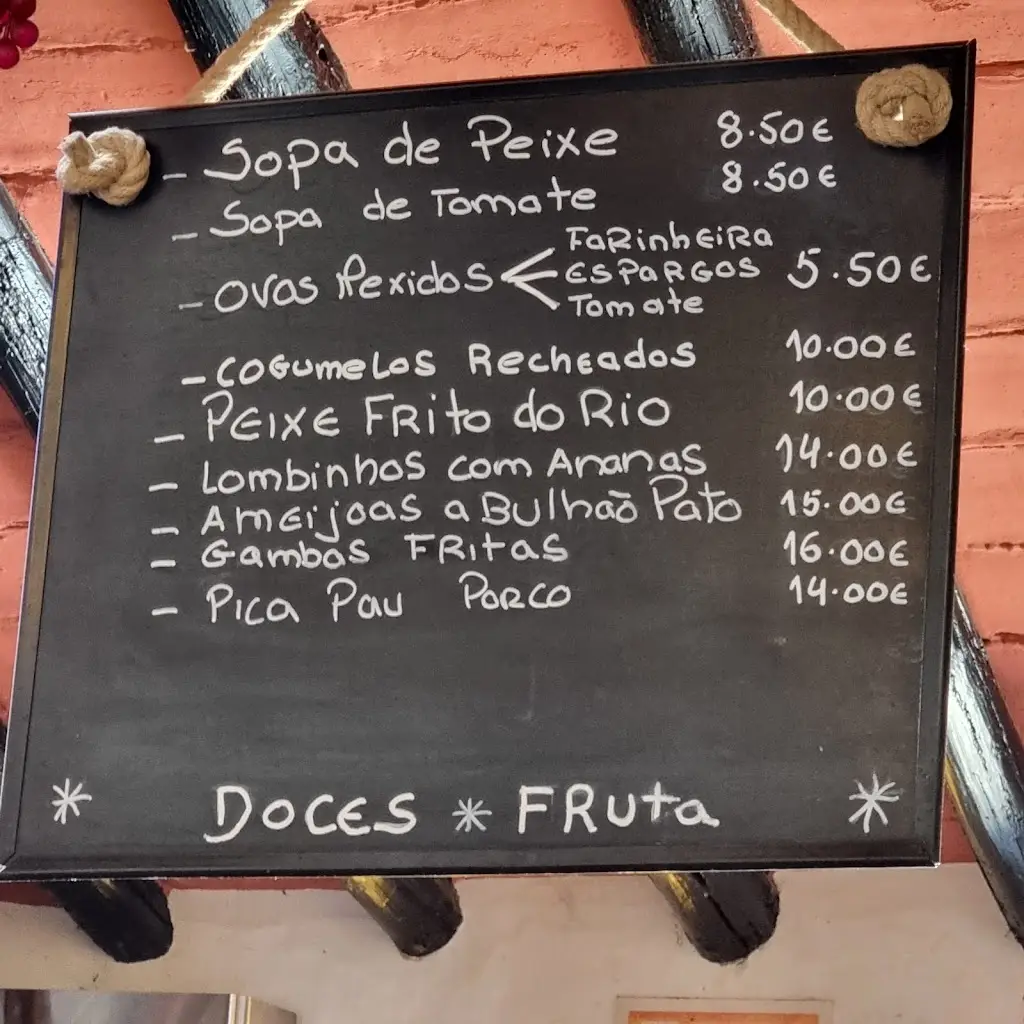 - Sopa de Peixe 8.50€
- Sopa de Tomate 8.50€
- Ovos Mexidos < Farinheira
Espargos 5.50€
Tomate
- Cogumelos Recheados 10.00€
- Peixe Frito do Rio 10.00€
- Lombinhos com Ananas 14.00€
- Ameijoas a Bulhão Pato 15.00€
- Gambas Fritas 16.00€
- Pica Pau Porco 14.00€
* Doces * Fruta *